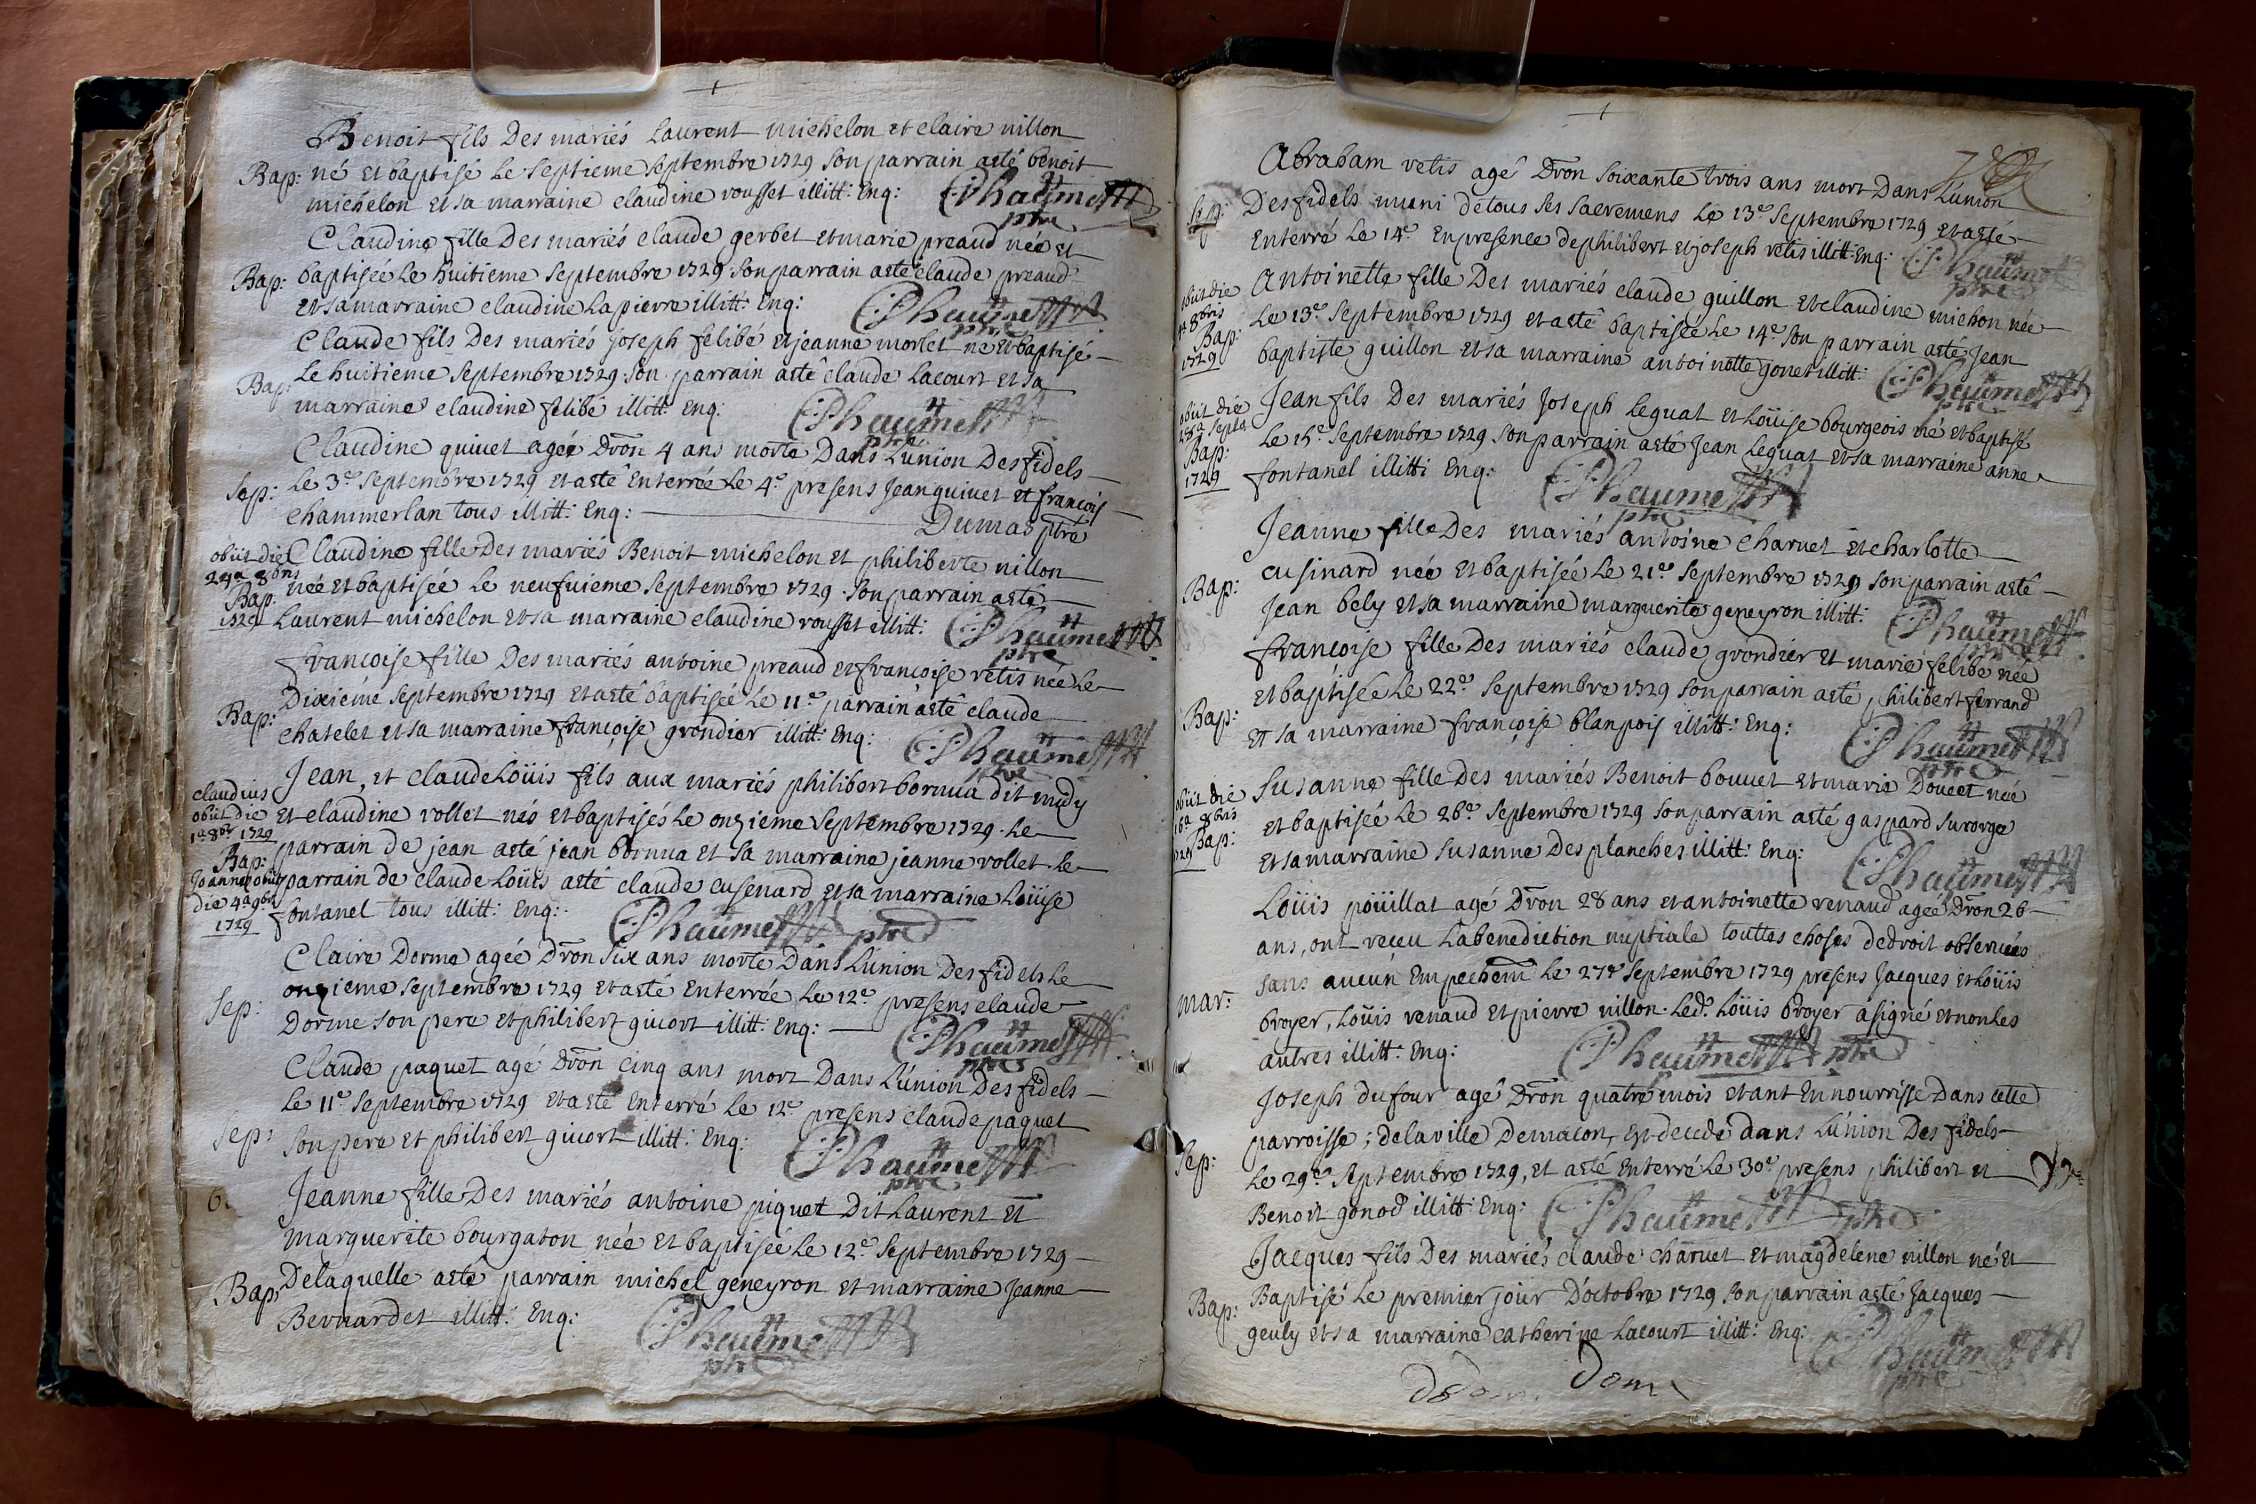 Benoit fils Des mariés Laurent michelon et claire nillon
Bap: né et baptisé Le Septieme Septembre 1729 son parrain aeté benoit
michelon et sa marraine claudine rousset illitt: Enq: Phaümet
ptre
Claudine fille Des mariés claude gerbet et marie preaud née et
Bap: baptisée Le huitieme Septembre 1729 son parrain aeté claude preaud
et sa marraine claudine Lapierre illitt: Enq: Phaümet
ptre
Claude fils Des mariés joseph felibé et jeanne morlet né et baptisé
Bap: Le huitieme Septembre 1729 son parrain aeté claude Lacourt et sa
marraine claudine felibé illitt: Enq: Phaümet
ptre
Claudine quiuet agée Dron 4 ans morte Dans L'union Des fidels
Sep: Le 3e Septembre 1729 et aeté Enterrée Le 4e presens Jean quiuet et françois
chammerlan tous illitt: Enq:
Dumas ptre
obiit die Claudine fille Des mariés Benoit michelon et philiberte nillon
24a 8bris née et baptisée Le neufuieme Septembre 1729 son parrain aeté
Bap: 1729 Laurent michelon et sa marraine claudine rousset illitt: Phaümet
ptre
françoise fille Des mariés antoine preaud et françoise vetis née Le
Dixieme Septembre 1729 et aeté baptisée Le 11e parrain aeté claude
Bap: chatelet et sa marraine françoise grondier illitt: Enq: Phaümet
ptre
Jean, et claude Loüis fils aux mariés philibert bornua dit midy
claudius obiit die et claudine vollet nés et baptisés Le onzieme Septembre 1729. Le
1a 8bris 1729 parrain de jean aeté jean bornua et sa marraine jeanne vollet. Le
Bap: Joannes obiit parrain de claude Loüis aeté claude cusenard et sa marraine Loüise
die 4a 9bris 1729 fontanel tous illitt: Enq: Phaümet ptre
Claire Dorme agée Dron six ans morte Dans L'union Des fidels Le
onzieme Septembre 1729 et aeté Enterrée Le 12e presens claude
Sep: Dorme son pere et philibert giuort illitt: Enq: Phaümet
ptre
Claude paquet agé Dron cinq ans mort Dans L'union Des fidels
Le 11e Septembre 1729 et aeté Enterré Le 12e presens claude paquet
Sep: son pere et philibert giuort illitt: Enq: Phaümet
ptre
Jeanne fille Des mariés antoine piquet Dit Laurent et
marguerite bourgaton née et baptisée Le 12e Septembre 1729
Bap: Delaquelle aeté parrain michel geneyron et marraine Jeanne
Bernardet illitt: Enq: Phaümet
ptre
Abraham vetis agé Dron soixante trois ans mort Dans L'union
Sep: Des fidels muni de tous ses sacremens Le 13e Septembre 1729 et aeté
Enterré Le 14e En presence de philibert et joseph vetis illitt: Enq: Phaümet
ptre
Antoinette fille Des mariés claude guillon et claudine michon née
obiit die Le 13e Septembre 1729 et aeté baptisée Le 14e son parrain aeté Jean
8bris Bap: 1729 baptiste guillon et sa marraine antoinette gonet illitt: Phaümet
ptre
Jean fils Des mariés Joseph Lequat et Loüise bourgeois né et baptisé
obiit die 28a Septa Le 15e Septembre 1729 son parrain aeté Jean Lequat et sa marraine anne
Bap: 1729 fontanel illitti Enq: Phaümet
ptre
Jeanne fille Des mariés antoine charuet et charlotte
Bap: cusinard née et baptisée Le 21e Septembre 1729 son parrain aeté
Jean bely et sa marraine marguerite geneyron illitt: Phaümet
ptre
françoise fille Des mariés claude grondier et marie felibé née
Bap: et baptisée Le 22e Septembre 1729 son parrain aeté philibert ferrand
et sa marraine françoise blanpois illitt: Enq: Phaümet
ptre
obiit die Susanne fille Des mariés Benoit bouuet et marie Doucet née
16a 8bris et baptisée Le 26e Septembre 1729 son parrain aeté gaspard Surorge
1729 Bap: et sa marraine susanne Des planches illitt: Enq: Phaümet
Loüis poüillat agé Dron 28 ans et antoinette renaud agée Dron 26
ans, ont receu La benediction nuptiale touttes choses de droit obseruées
sans aucun Empechem̃ Le 27e Septembre 1729 presens Jacques et Loüis
mar: broyer, Loüis renaud et pierre nillon. Led. Loüis broyer a signé et non Les
autres illitt: Enq: Phaümet ptre
Joseph dufour agé Dron quatre mois etant En nourrisse Dans cette
parroisse; de la ville De macon, est decedé dans L'union Des fidels
Sep: Le 29e Septembre 1729, et aeté Enterré Le 30e presens philibert et
Benoit gonod illitt: Enq: Phaümet ptre
Jacques fils Des mariés claude charuet et magdelene nillon né et
Bap: Baptisé Le premier jour D'octobre 1729 son parrain aeté Jacques
geuly et sa marraine catherine Lacourt illitt: Enq: Phaümet
ptre